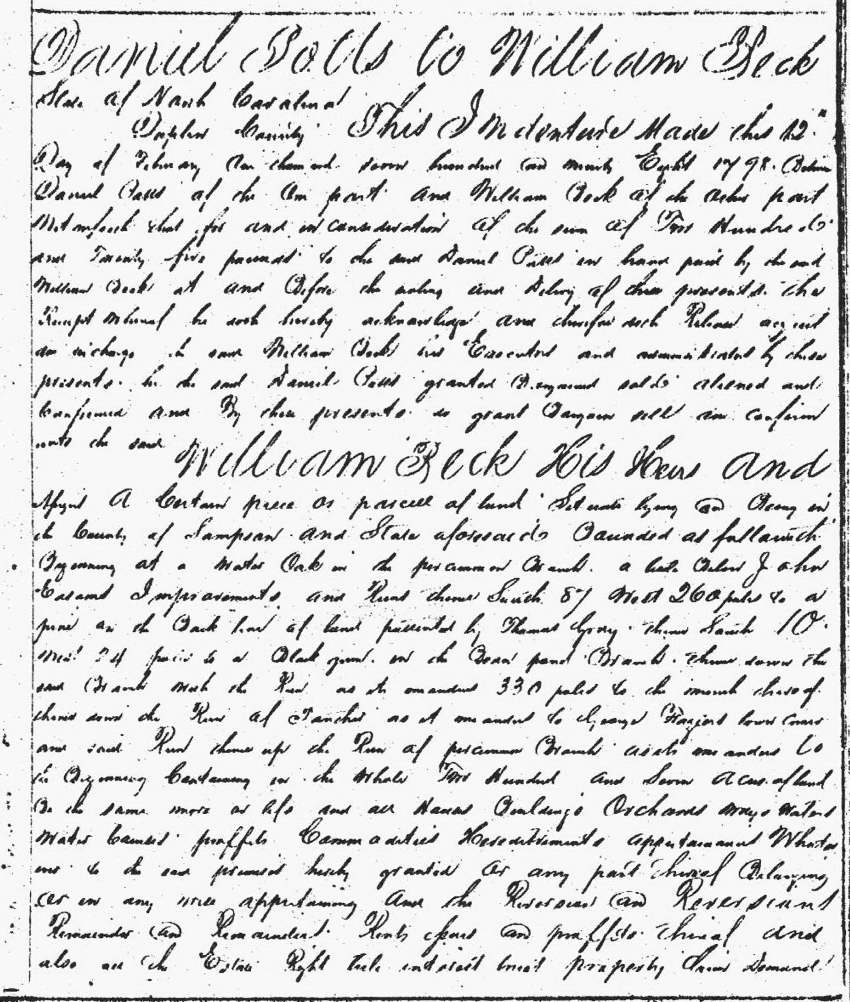 Daniel Potts to William Beck
State of North Carolina
Duplin County This Indenture Made this 12th
Day of February one thousand seven hundred and ninety Eight 1798. Between
Daniel Potts of the one part and William Beck of the other part
Witnesseth that for and in consideration of the sum of Two Hundred
and Twenty five pounds to the said Daniel Potts in hand paid by the said
William Beck at and Before the sealing and Delivery of these presents the
Receipt Whereof he doth hereby acknowledge and therefor doth Release acquit
an discharge the said William Beck his Executors and administrators by these
presents he the said Daniel Potts granted Bargained sold aliened and
Confirmed and By these presents do grant Bargain sell and confirm
unto the said William Beck His Heirs and
Assigns A Certain piece or parcell of land Situate lying and Being in
the County of Sampson and State aforesaid Bounded as followeth
Beginning at a Water Oak in the persimmon Branch a little Below John
Improvements and Runs thence South 87 West 260 poles to a
pine on the Back line of land patented by Thomas Gray thence South 10
West 24 poles to a Black gum in the Branch thence down the
said Branch with the Run as it meanders 330 poles to the mouth thereof
thence down the Run of as it meanders to George lower corner
and said Run thence up the Run of persimmon Branch as it meanders to
the Beginning Containing in the Whole Two Hundred and Seven Acres of land
Be the same more or less and all Houses Buildings Orchards ways Waters
Water Courses proffits Commodities Hereditements appurtenances Whatso
ever to the said premises hereby granted or any part thereof Belonging
or in any wise appertaining and the Reversion and Reversions
Remainder and Remainders Rents and proffits thereof and
also all the Estate Right title interest property Claim Demand